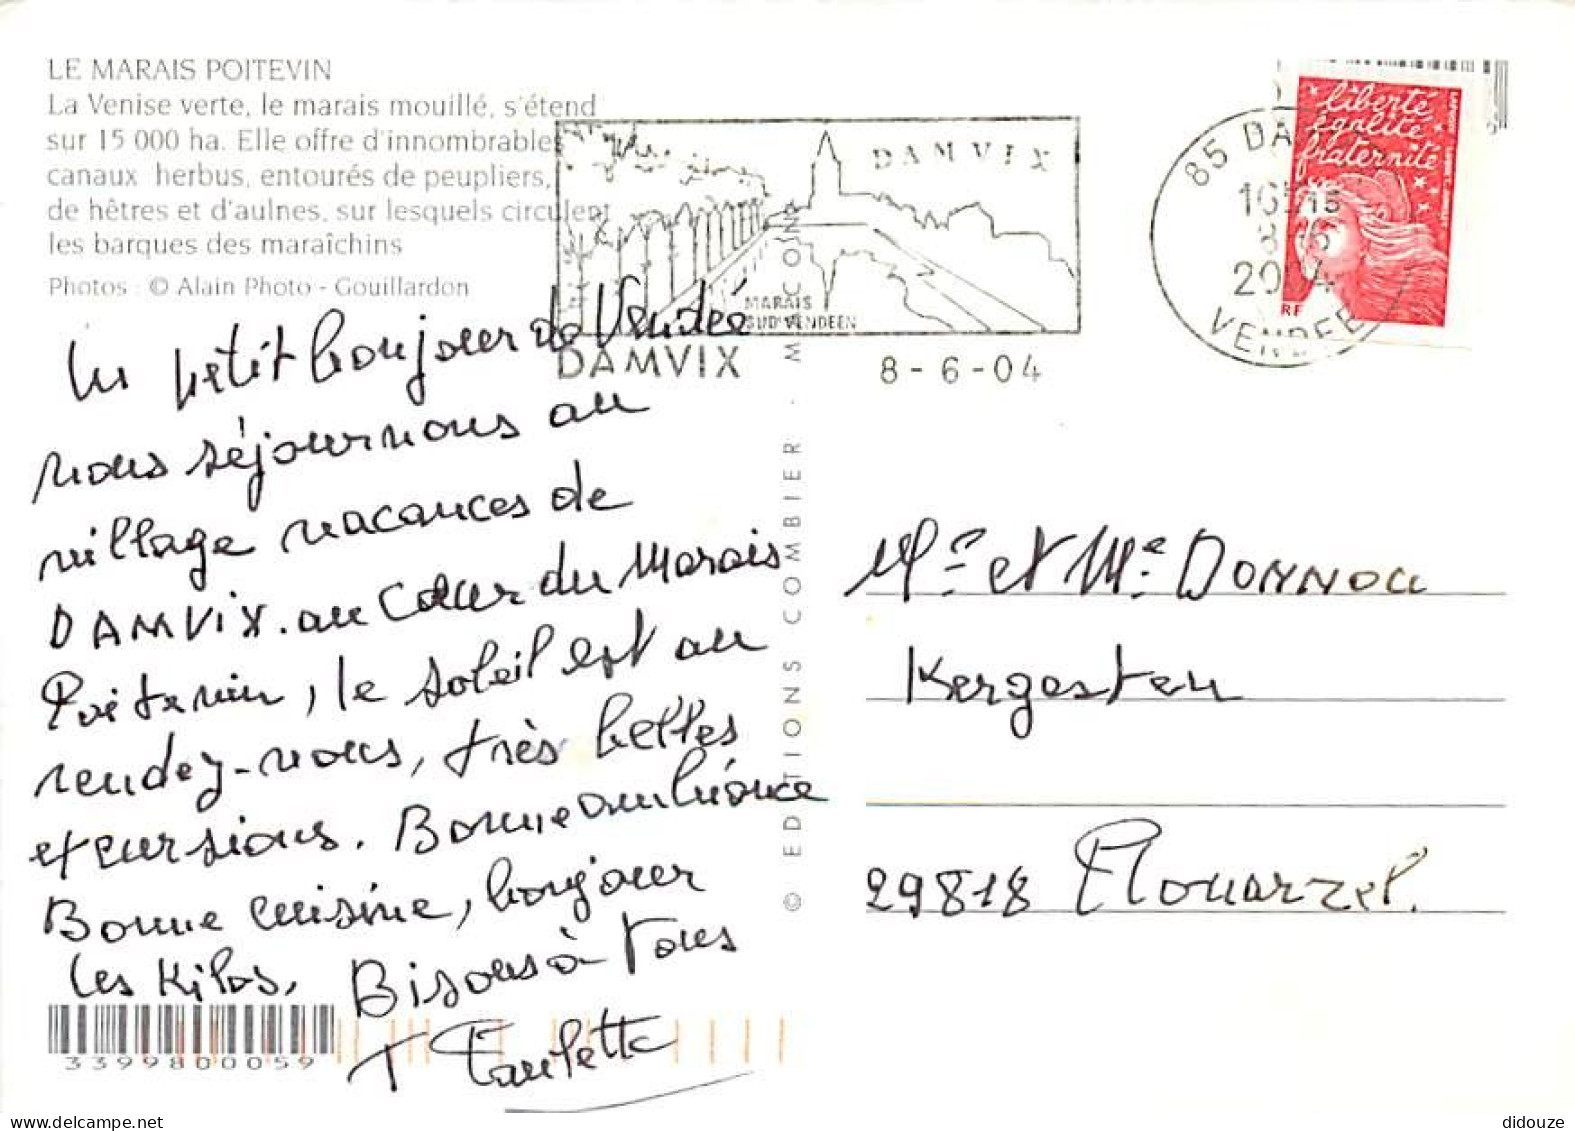 LE MARAIS POITEVIN
La Venise verte, le marais mouillé, s'étend
sur 15 000 ha. Elle offre d'innombrables
canaux herbus, entourés de peupliers,
de hêtres et d'aulnes, sur lesquels circulent
les barques des maraîchins
Photos : © Alain Photo - Gouillardon
Un petit bonjour de Vendée
nous séjournons au
village vacances de
DAMVIX. au Cœur du Marais
Poitevin, le soleil est au
rendez-vous, très belles
excursions. Bonne ambiance
Bonne cuisine, bonjour
les Kilos,
Bisous à Tous
Paulette
3399800059
© EDITIONS COMBIER - MACON
DAMVIX
MARAIS
SUD VENDEEN
DAMVIX
8-6-04
85 DA
2004
VENDEE
liberté
égalité
fraternité
RF
Mr et Me DONNOU
Kergosten
29818 Plouarzel.
didouze